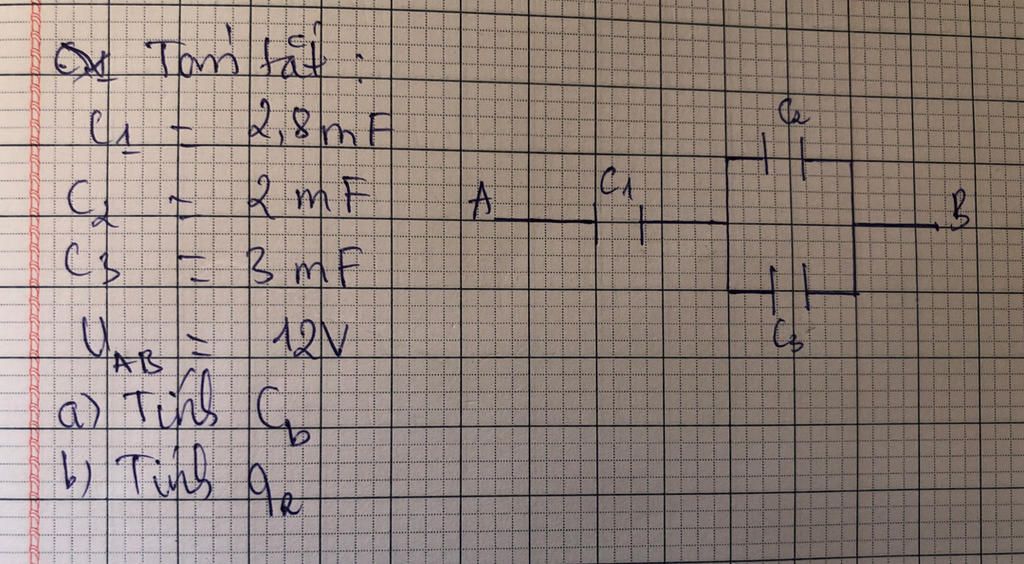 Tóm tắt :
C1 = 2,8 mF
C2 = 2 mF
C3 = 3 mF
UAB = 12V
a) Tính Cb
b) Tính q2
A C1 C2 C3 B